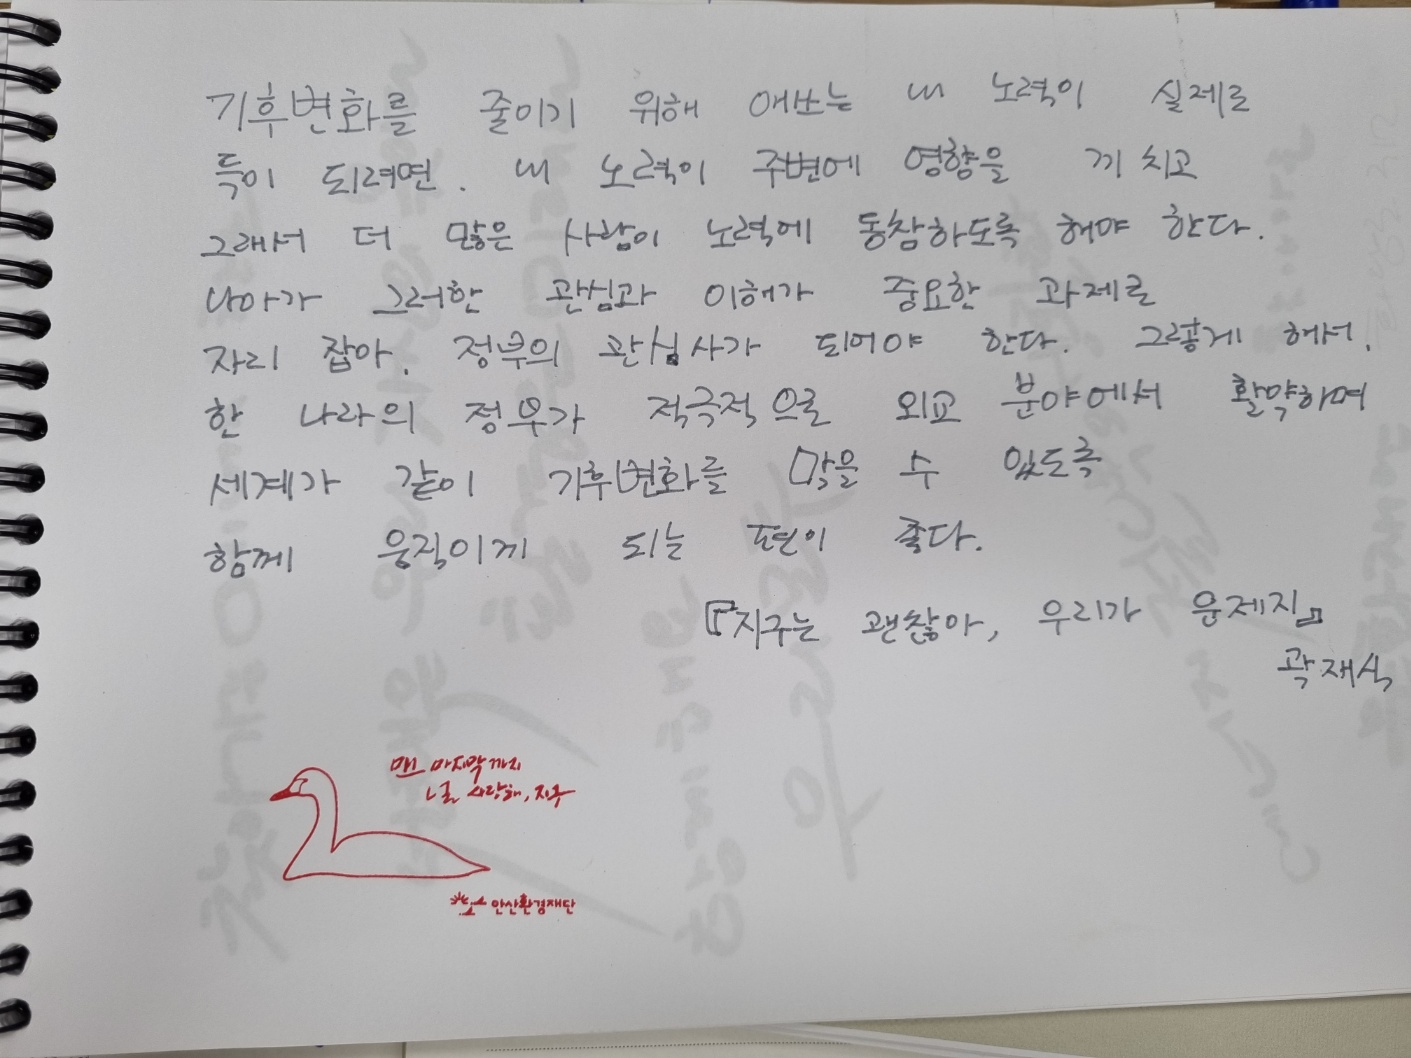 기후변화를 줄이기 위해 애쓰는 내 노력이 실제로
득이 되려면. 내 노력이 주변에 영향을 끼치고
그래서 더 많은 사람이 노력에 동참하도록 해야 한다.
나아가 그러한 관심과 이해가 중요한 과제로
자리 잡아. 정부의 관심사가 되어야 한다. 그렇게 해서.
한 나라의 정부가 적극적으로 외교 분야에서 활약하며
세계가 같이 기후변화를 막을 수 있도록
함께 움직이게 되는 편이 좋다.
『지구는 괜찮아, 우리가 문제지』
곽재식
맨 마지막까지
널 사랑해, 지구
안산환경재단